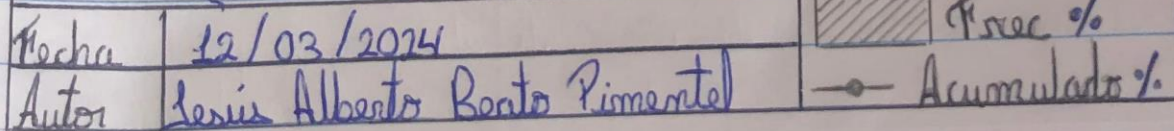 Fecha 12/03/2024 Frec %
Autor Jesús Alberto Borato Pimentel Acumulado %